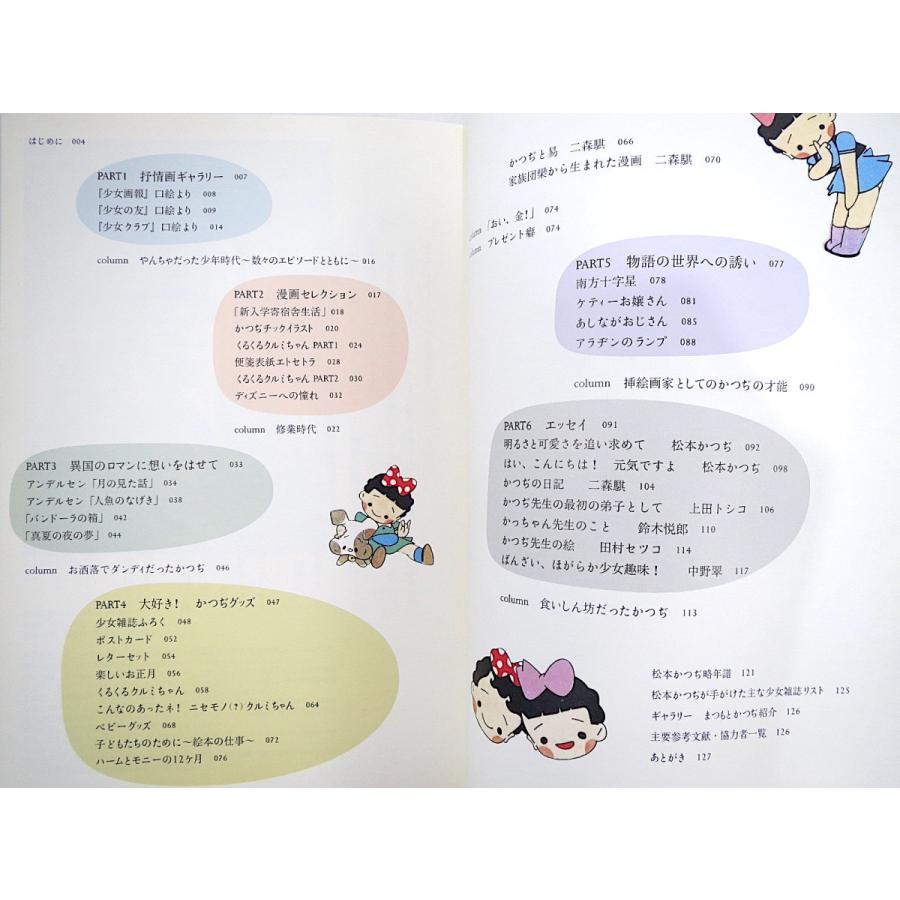 はじめに 004
PART1 抒情画ギャラリー 007
『少女画報』口絵より 008
『少女の友』口絵より 009
『少女クラブ』口絵より 014
column やんちゃだった少年時代～数々のエピソードとともに～ 016
PART2 漫画セレクション 017
「新入学寄宿舎生活」 018
かつぢチックイラスト 020
くるくるクルミちゃん PART1 024
便箋表紙エトセトラ 028
くるくるクルミちゃん PART2 030
ディズニーへの憧れ 032
column 修業時代 022
PART3 異国のロマンに想いをはせて 033
アンデルセン「月の見た話」 034
アンデルセン「人魚のなげき」 038
「パンドーラの箱」 042
「真夏の夜の夢」 044
column お洒落でダンディだったかつぢ 046
PART4 大好き! かつぢグッズ 047
少女雑誌ふろく 048
ポストカード 052
レターセット 054
楽しいお正月 056
くるくるクルミちゃん 058
こんなのあったネ! ニセモノ(?)クルミちゃん 064
ベビーグッズ 068
子どもたちのために～絵本の仕事～ 072
ハームとモニーの12ヶ月 076
かつぢと易 二森騏 066
家族団欒から生まれた漫画 二森騏 070
column 「おい、金!」 074
column プレゼント癖 074
PART5 物語の世界への誘い 077
南方十字星 078
ケティーお嬢さん 081
あしながおじさん 085
アラヂンのランプ 088
column 挿絵画家としてのかつぢの才能 090
PART6 エッセイ 091
明るさと可愛さを追い求めて 松本かつぢ 092
はい、こんにちは! 元気ですよ 松本かつぢ 098
かつぢの日記 二森騏 104
かつぢ先生の最初の弟子として 上田トシコ 106
かっちゃん先生のこと 鈴木悦郎 110
かつぢ先生の絵 田村セツコ 114
ばんざい、ほがらか少女趣味! 中野翠 117
column 食いしん坊だったかつぢ 113
松本かつぢ略年譜 121
松本かつぢが手がけた主な少女雑誌リスト 125
ギャラリー まつもとかつぢ紹介 126
主要参考文献・協力者一覧 126
あとがき 127